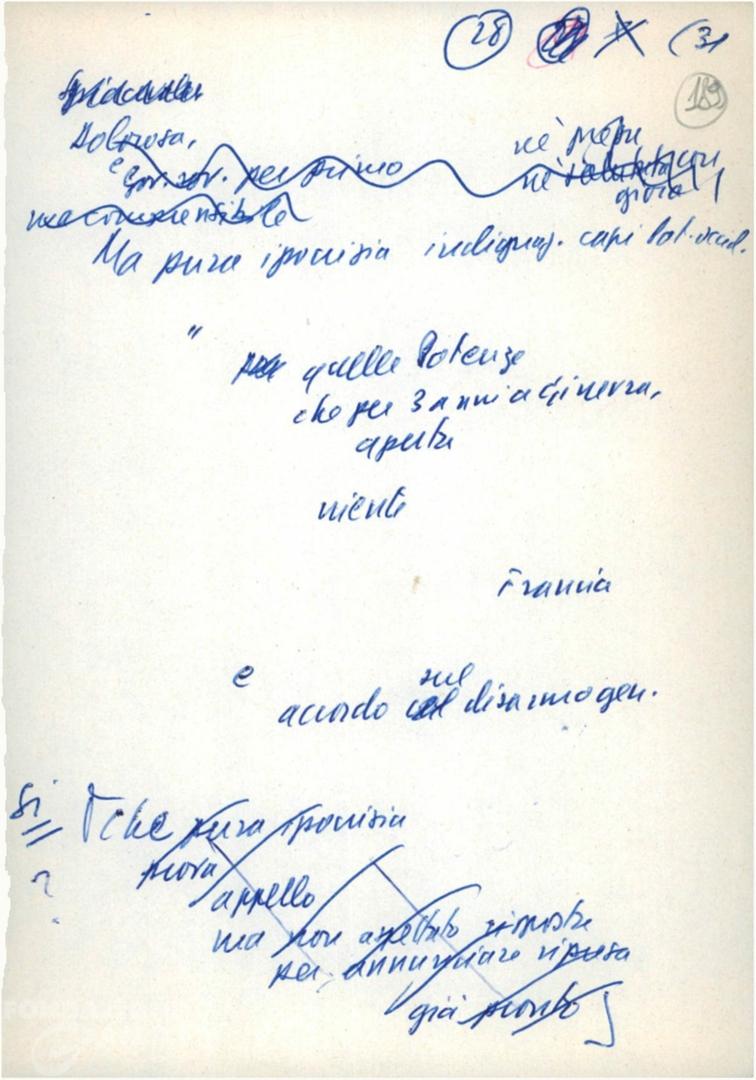 28 31
189
Dolorosa,
né
e Gov. sov. per primo
né salutata con
gioia
ma comprensibile
Ma pura ipocrisia indignaz. capi Pot. occid.
"
quelle Potenze
che per 3 anni a Ginevra,
aperta
niente
Francia
e
accordo sul disarmo gen.
Sì [che pura ipocrisia
?
prova
appello
ma non aspettato risposta
per annunciare ripresa
già pronto]